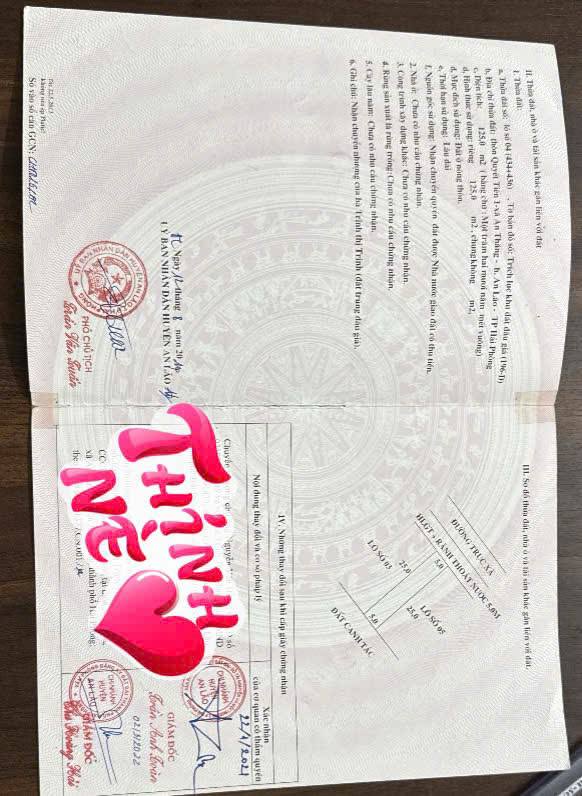 II. Thửa đất, nhà ở và tài sản khác gắn liền với đất
1. Thửa đất:
a. Thửa đất số: lô số 04 (434+436) , Tờ bản đồ số: Trích lục khu đất đấu giá (196-D)
b. Địa chỉ thửa đất: thôn Quyết Tiến 1-xã An Thắng - h. An Lão - TP Hải Phòng
c. Diện tích: 125,0 m2 ( bằng chữ : Một trăm hai mươi năm mét vuông)
d. Hình thức sử dụng: riêng 125,0 m2 , chung không m2,
đ. Mục đích sử dụng: Đất ở nông thôn.
e. Thời hạn sử dụng: Lâu dài
f. Nguồn gốc sử dụng: Nhận chuyển quyền đất được Nhà nước giao đất có thu tiền.
2. Nhà ở: Chưa có nhu cầu chứng nhận.
3. Công trình xây dựng khác: Chưa có nhu cầu chứng nhận.
4. Rừng sản xuất là rừng trồng: Chưa có nhu cầu chứng nhận.
5. Cây lâu năm: Chưa có nhu cầu chứng nhận.
6. Ghi chú: Nhận chuyển nhượng của bà Trịnh thị Trinh (đất trúng đấu giá).
Ngày 12 tháng 8 năm 20
ỦY BAN NHÂN DÂN HUYỆN AN LÃO
ỦY BAN NHÂN DÂN HUYỆN AN LÃO
PHÓ CHỦ TỊCH
Trần Văn Tuấn
Số vào sổ cấp GCN:
III. Sơ đồ thửa đất, nhà ở và tài sản khác gắn liền với đất.
ĐƯỜNG TRỤC XÃ
HLGT + RÃNH THOÁT NƯỚC 5,0M
5,0
LÔ SỐ 03
25,0
25,0
LÔ SỐ 05
5,0
ĐẤT CANH TÁC
IV. Những thay đổi sau khi cấp giấy chứng nhận
Nội dung thay đổi và cơ sở pháp lý
Xác nhận
của cơ quan có thẩm quyền
Chuyển
22/1/2021
CHI NHÁNH
HUYỆN
AN LÃO
GIÁM ĐỐC
Trần Anh Tuấn
02/11/2022
CHI NHÁNH
HUYỆN
AN LÃO
GIÁM ĐỐC
THÌNH
NÈ